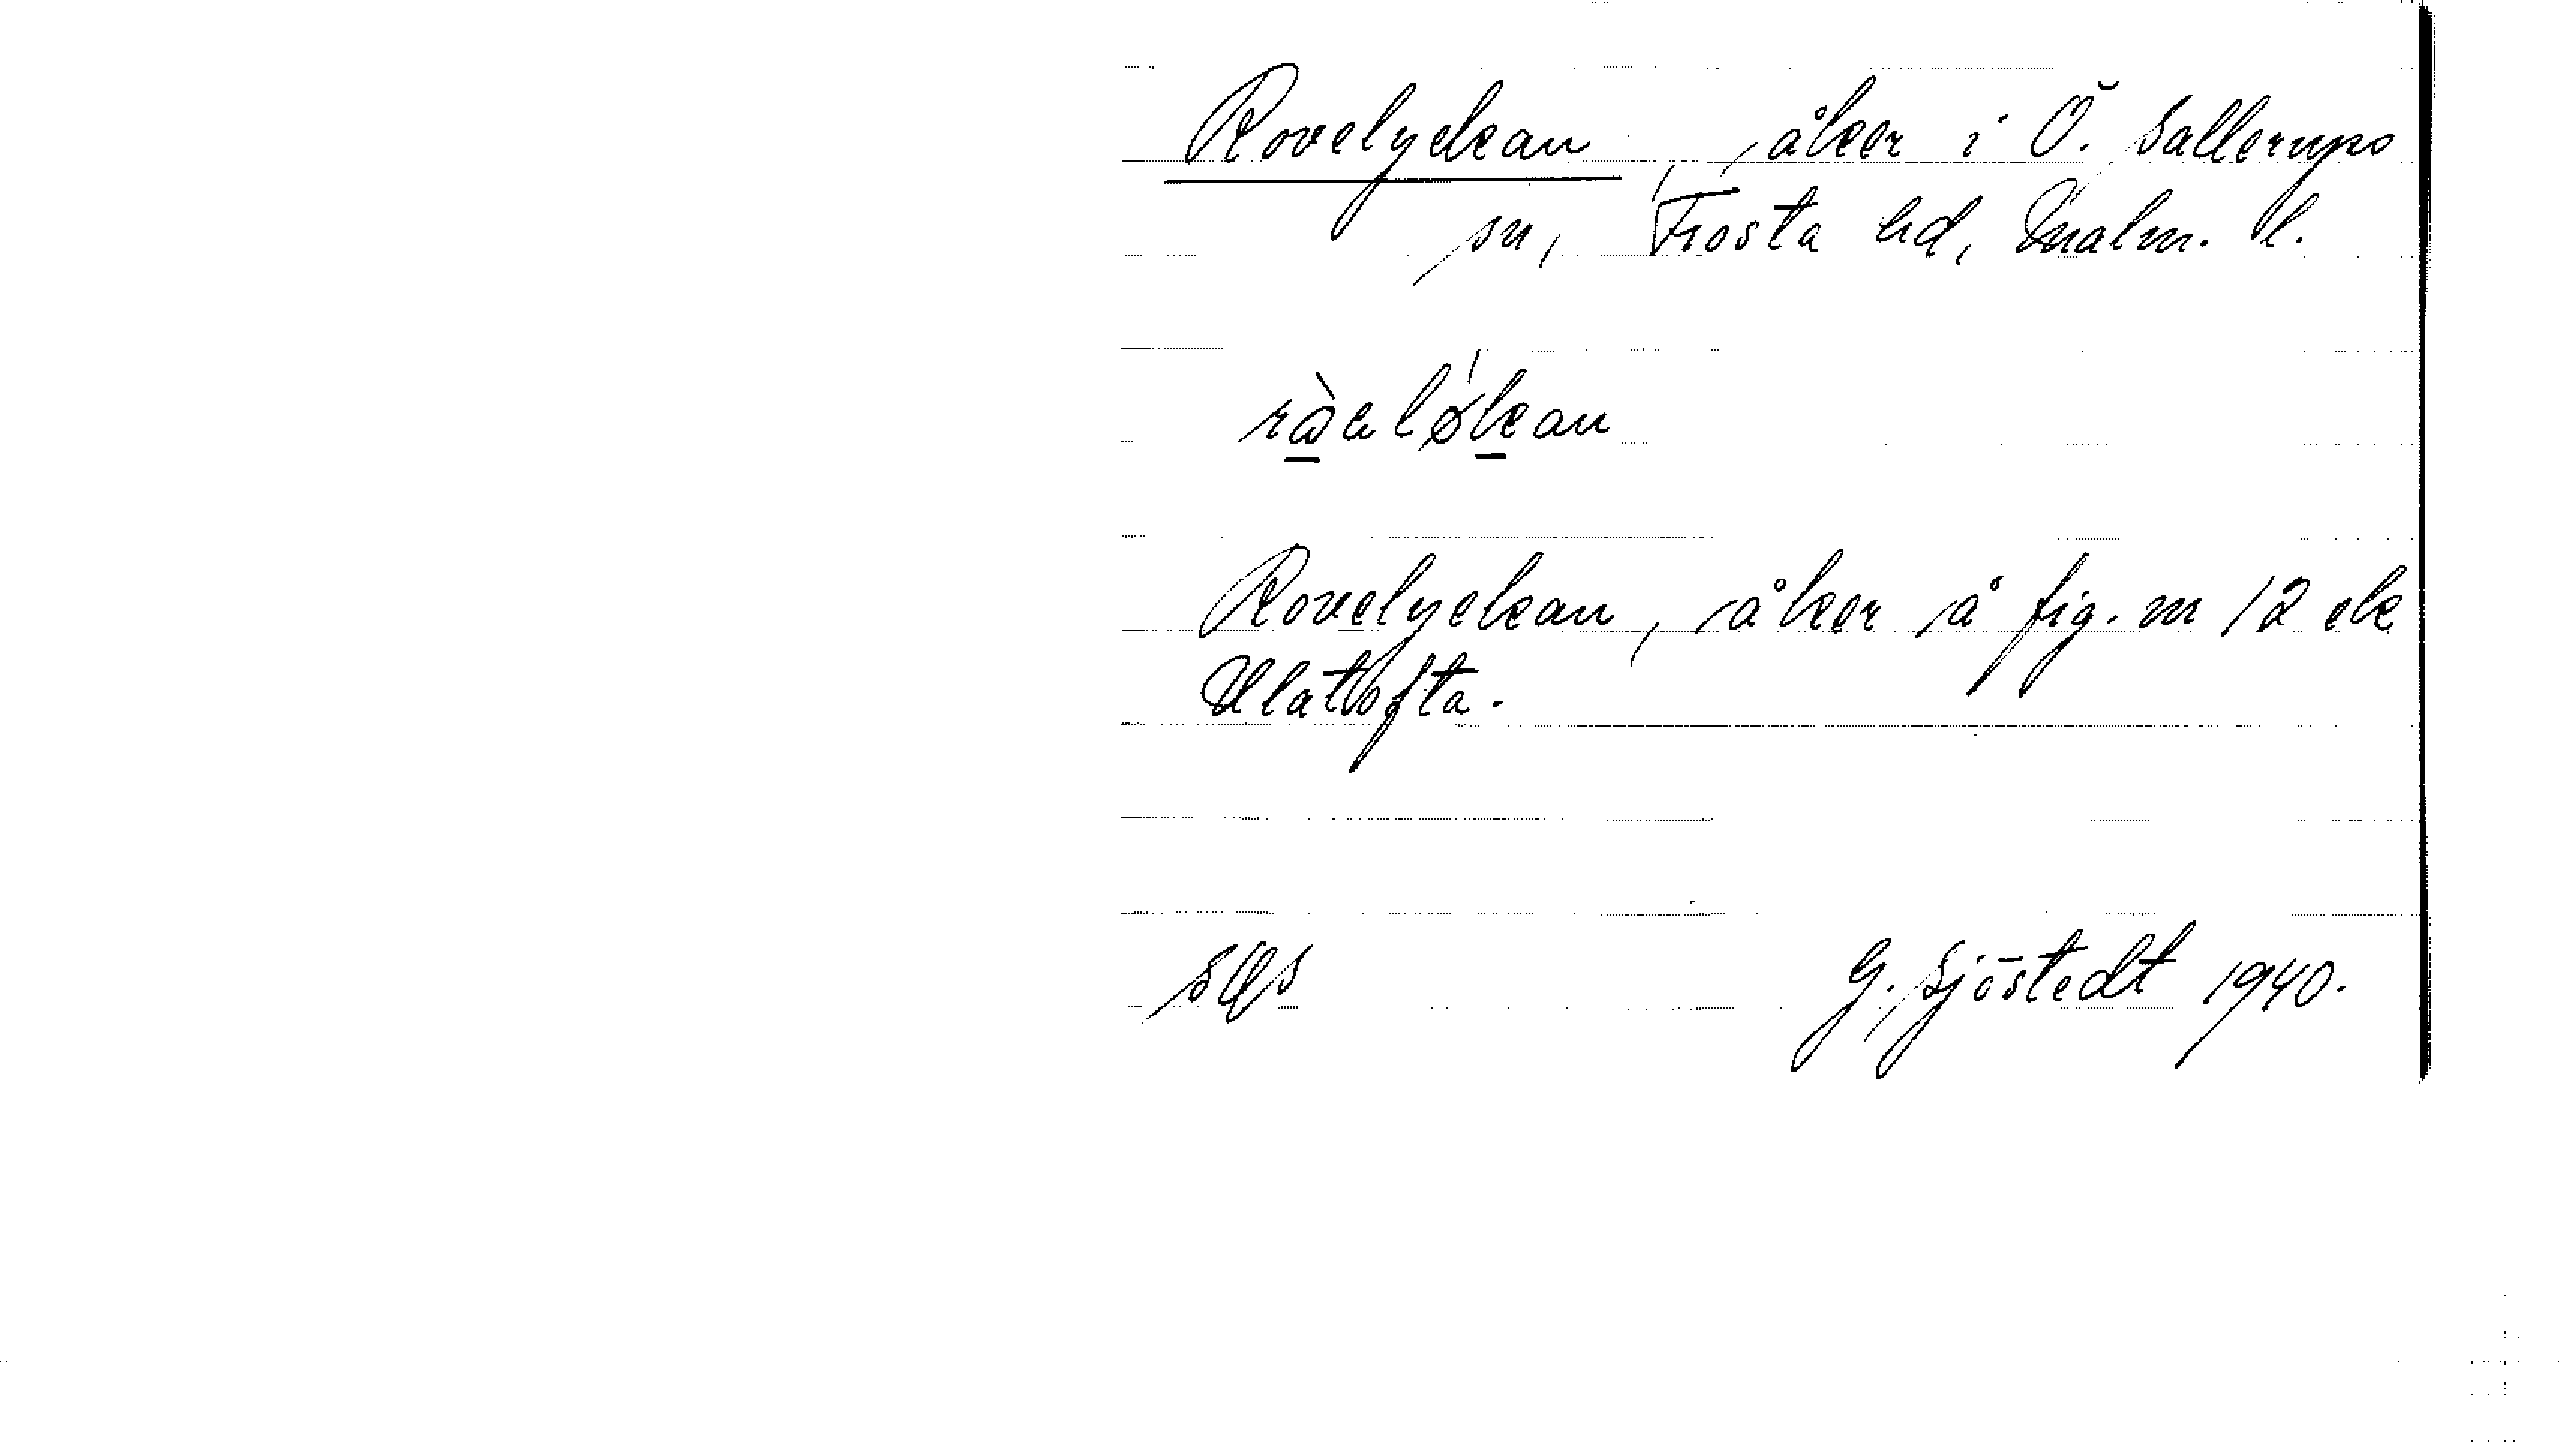 Rovelyckan, åker i Ö. Sallerups
sn, Frosta hd, Malm. l.
Rovelyckan, åker å fig. nr 12 ek
Ulatofta.
G. Sjöstedt 1940.